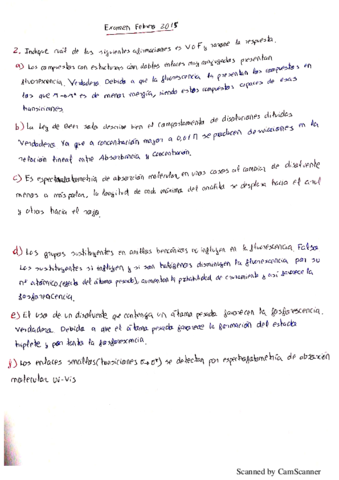 Examen Febrero 2018
2. Indique cuál de las siguientes afirmaciones es V o F y razone la respuesta.
a) Los compuestos con estructuras con dobles enlaces muy conjugados presentan
fluorescencia. Verdadera. Debido a que la fluorescencia la presentan los compuestos en
los que π→π* es de menor energía, siendo estos compuestos capaces de esas
transiciones.
b) La Ley de Beer solo describe bien el comportamiento de disoluciones diluidas
Verdadera. Ya que a concentración mayor a 0,01 M se producen desviaciones en la
relación lineal entre Absorbancia y concentración.
c) Es espectrofotometría de absorción molecular, en unos casos al cambiar de disolvente
menos a más polar, la longitud de onda máxima del analito se desplaza hacia el azul
y otras hacia el rojo.
d) Los grupos sustituyentes en anillos bencénicos no influyen en la fluorescencia. Falsa
Los sustituyentes si influyen y si son halógenos disminuyen la fluorescencia por su
nº atómico (efecto del átomo pesado), aumentando la probabilidad de cruzamiento y así favorece la
fosforescencia.
e) El uso de un disolvente que contenga un átomo pesado favorecen la fosforescencia.
Verdadera. Debido a que el átomo pesado favorece la formación del estado
triplete y por tanto la fosforescencia.
f) Los enlaces simples (transiciones σ→σ*) se detectan por espectrofotometría de absorción
molecular UV-Vis
Scanned by CamScanner